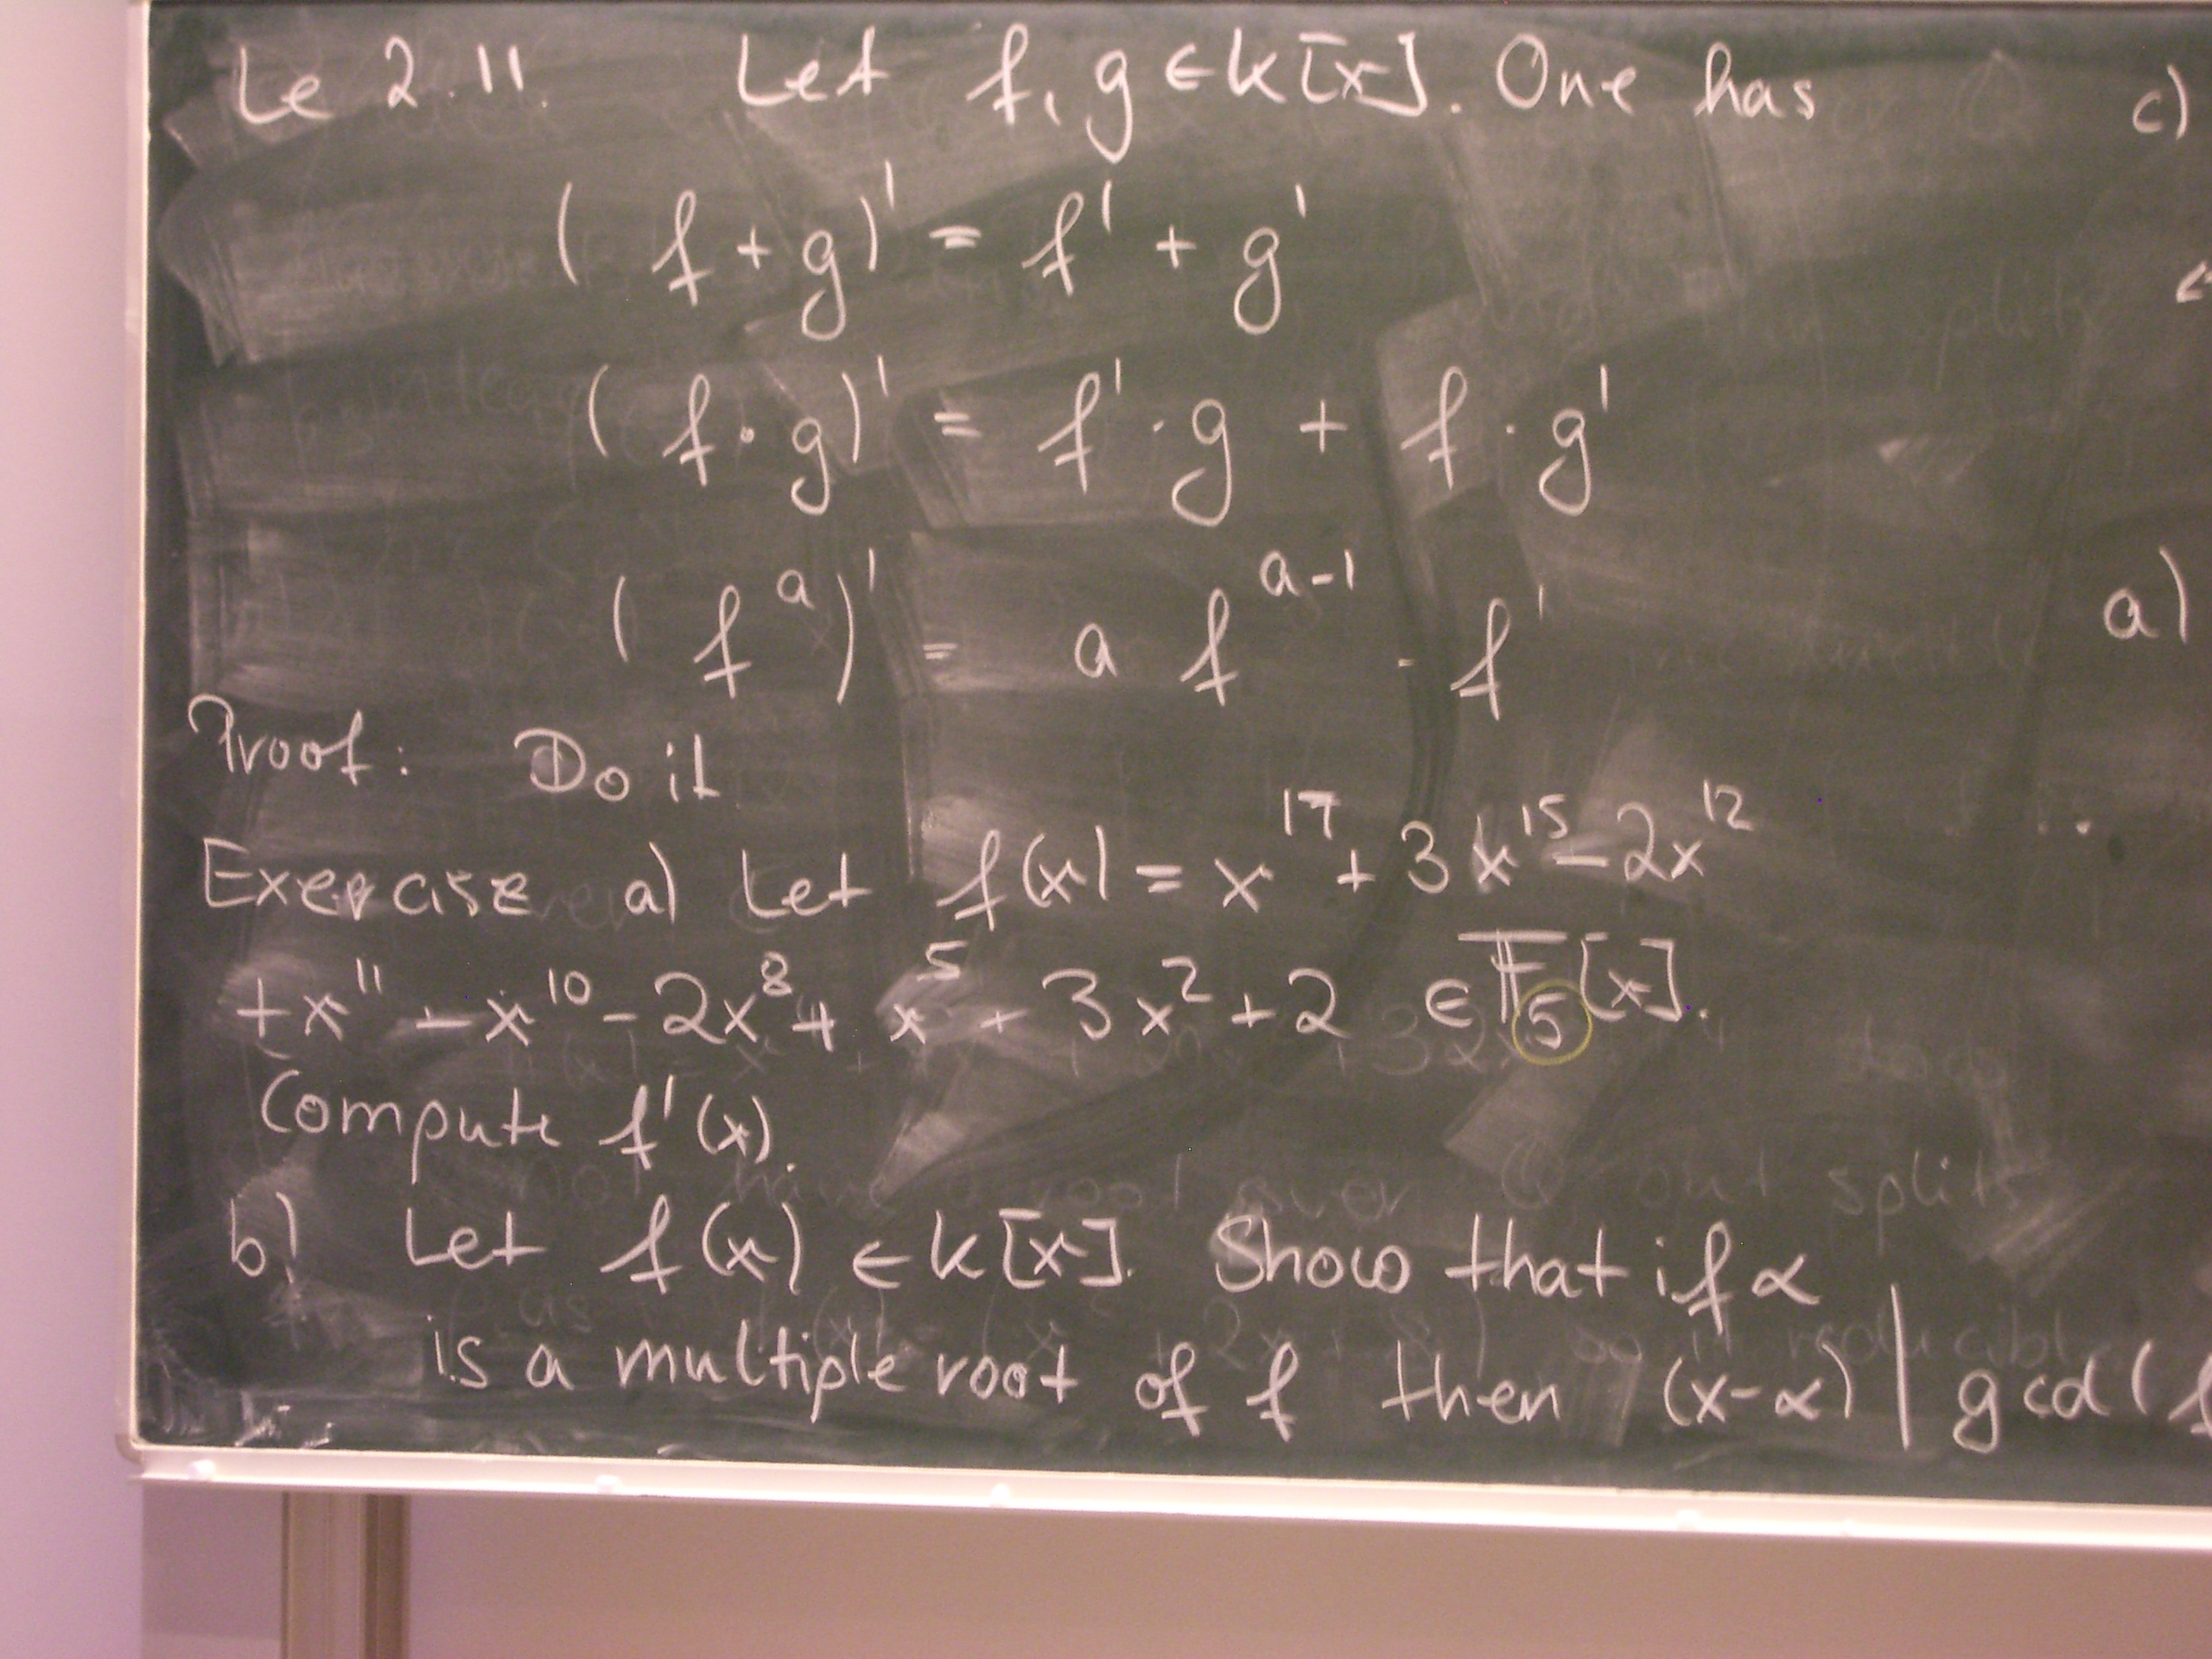 Le 2.11. Let f, g ∈ k[x]. One has
(f + g)' = f' + g'
(f · g)' = f' · g + f · g'
(f^a)' = a f^{a-1} · f'
Proof: Do it
Exercise a) Let f(x) = x^17 + 3x^15 - 2x^12
+ x^11 - x^10 - 2x^8 + x^5 + 3x^2 + 2 ∈ F_5[x].
Compute f'(x).
b) Let f(x) ∈ k[x]. Show that if α
is a multiple root of f then (x-α) | gcd(f
c)
a)